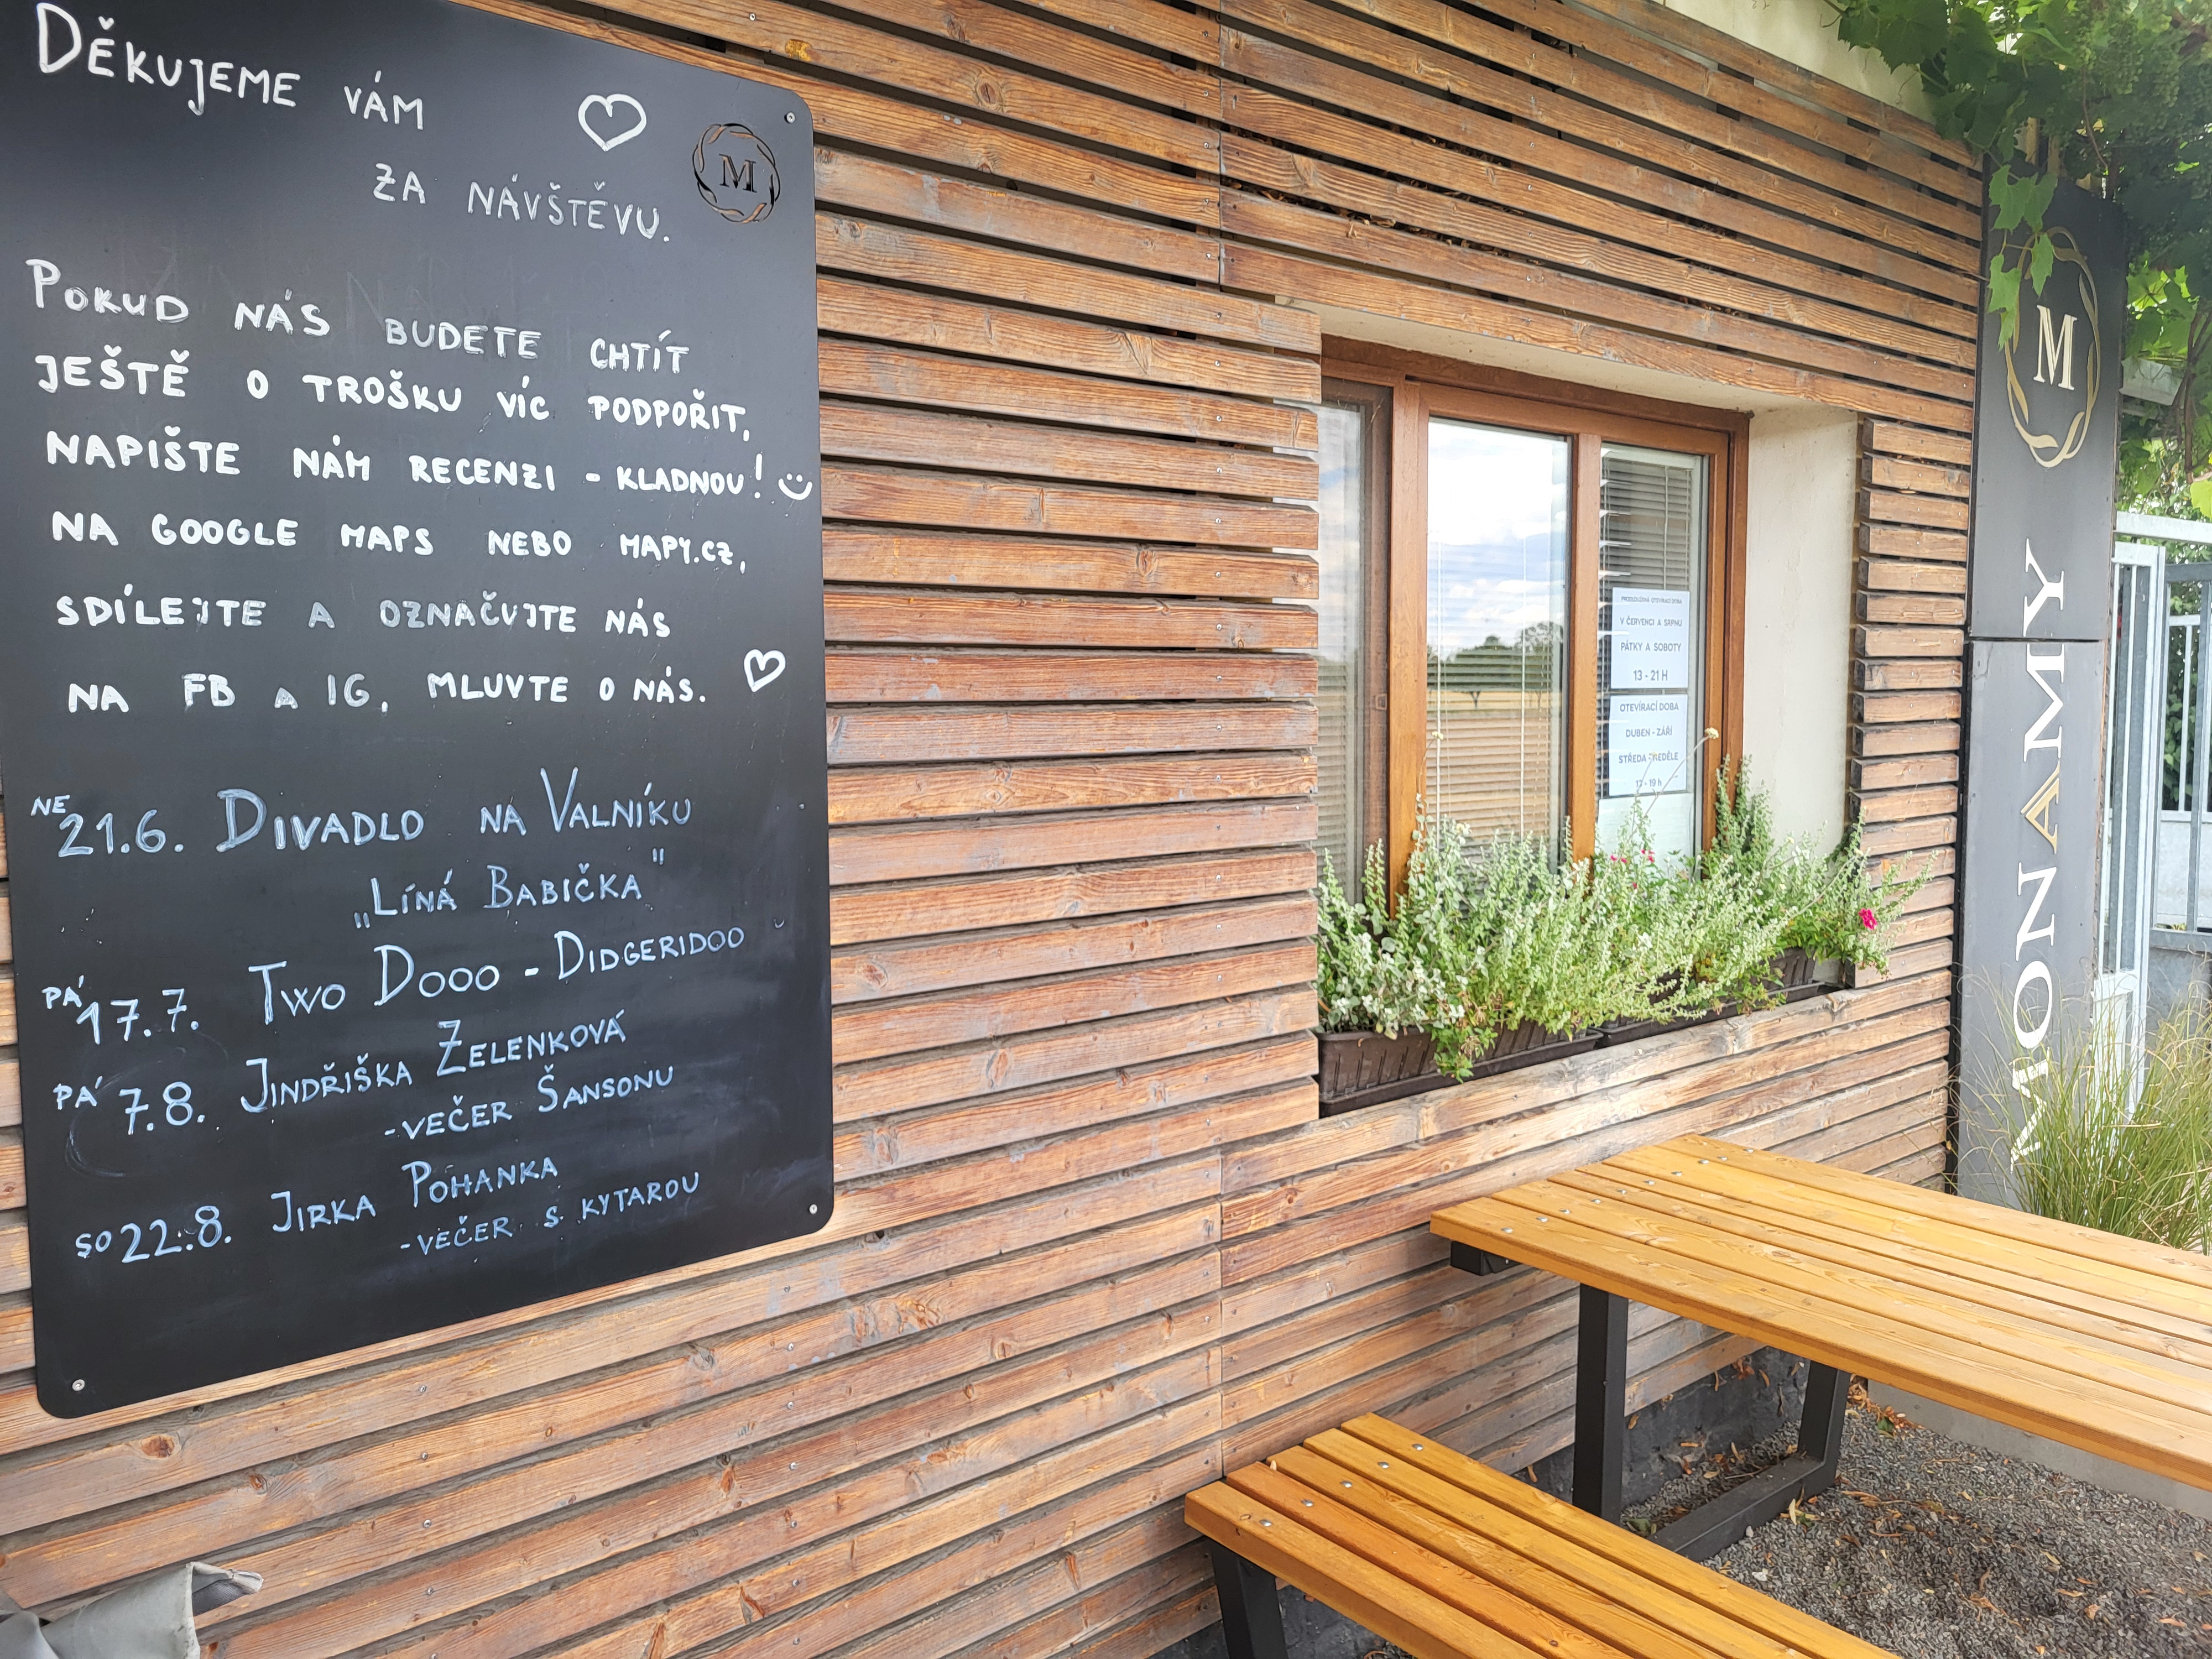 DĚKUJEME VÁM
ZA NÁVŠTĚVU.
M
POKUD NÁS BUDETE CHTÍT
JEŠTĚ O TROŠKU VÍC PODPOŘIT,
NAPIŠTE NÁM RECENZI - KLADNOU!
NA GOOGLE MAPS NEBO MAPY.CZ,
SDÍLEJTE A OZNAČUJTE NÁS
NA FB A IG, MLUVTE O NÁS.
NE 21.6. DIVADLO NA VALNÍKU
„LÍNÁ BABIČKA"
PÁ 17.7. TWO DOOO - DIDGERIDOO
PÁ 7.8. JINDŘIŠKA ZELENKOVÁ
- VEČER ŠANSONU
SO 22.8. JIRKA POHANKA
- VEČER S KYTAROU
PRODLOUŽENÁ OTEVÍRACÍ DOBA
V ČERVENCI A SRPNU
PÁTKY A SOBOTY
13 - 21 H
OTEVÍRACÍ DOBA
DUBEN - ZÁŘÍ
STŘEDA - NEDĚLE
19 h
M
MONAMY